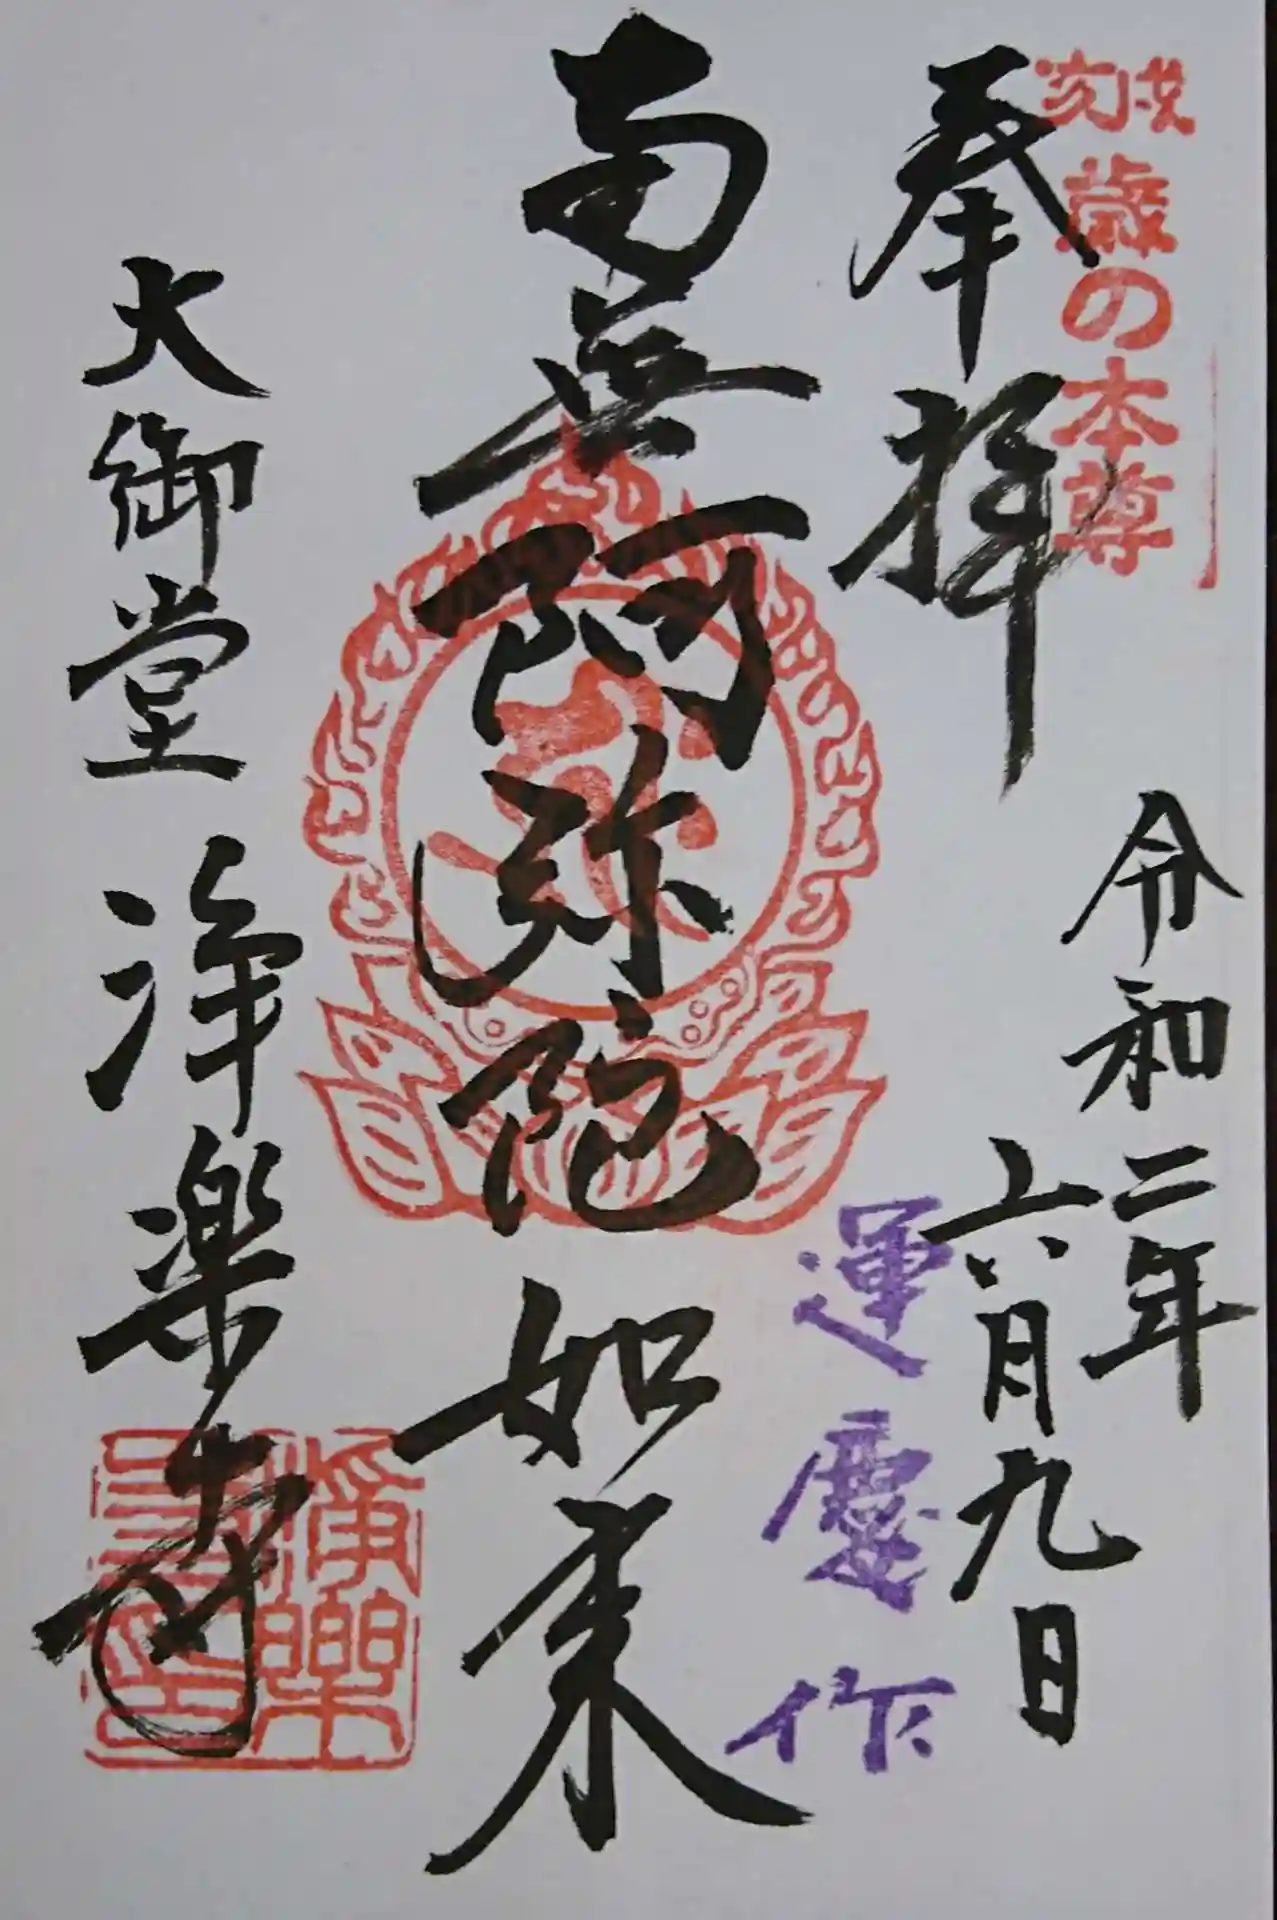 戌亥
歳の本尊
奉拝
令和二年
六月九日
運慶作
南無阿弥陀如来
大御堂 浄楽寺
浄楽
寺印